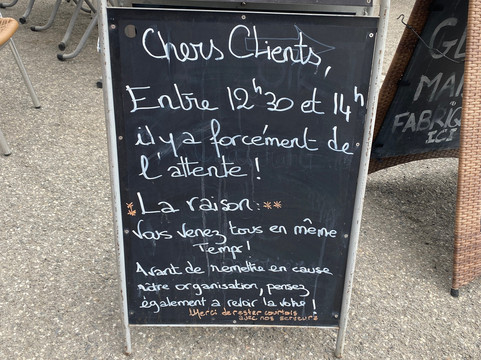 Chers Clients,
Entre 12h30 et 14h
il y a forcément de
l'attente !
* La raison : **
Vous venez tous en même
Temps !
Avant de remettre en cause
notre organisation, pensez
également a revoir la votre !
Merci de rester courtois
avec nos serveurs
GL
MAI
FABRIQ
ICI